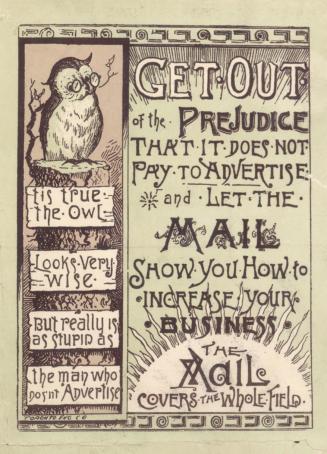 tis true
the Owl
Looks Very
Wise
But really is
as stupid as
the man who
dosnt Advertise
TORONTO ENG. CO
GET OUT
of the PREJUDICE
THAT IT DOES NOT
PAY TO ADVERTISE
and LET THE
MAIL
SHOW YOU HOW to
INCREASE YOUR
BUSINESS
THE
MAIL
COVERS THE WHOLE FIELD.